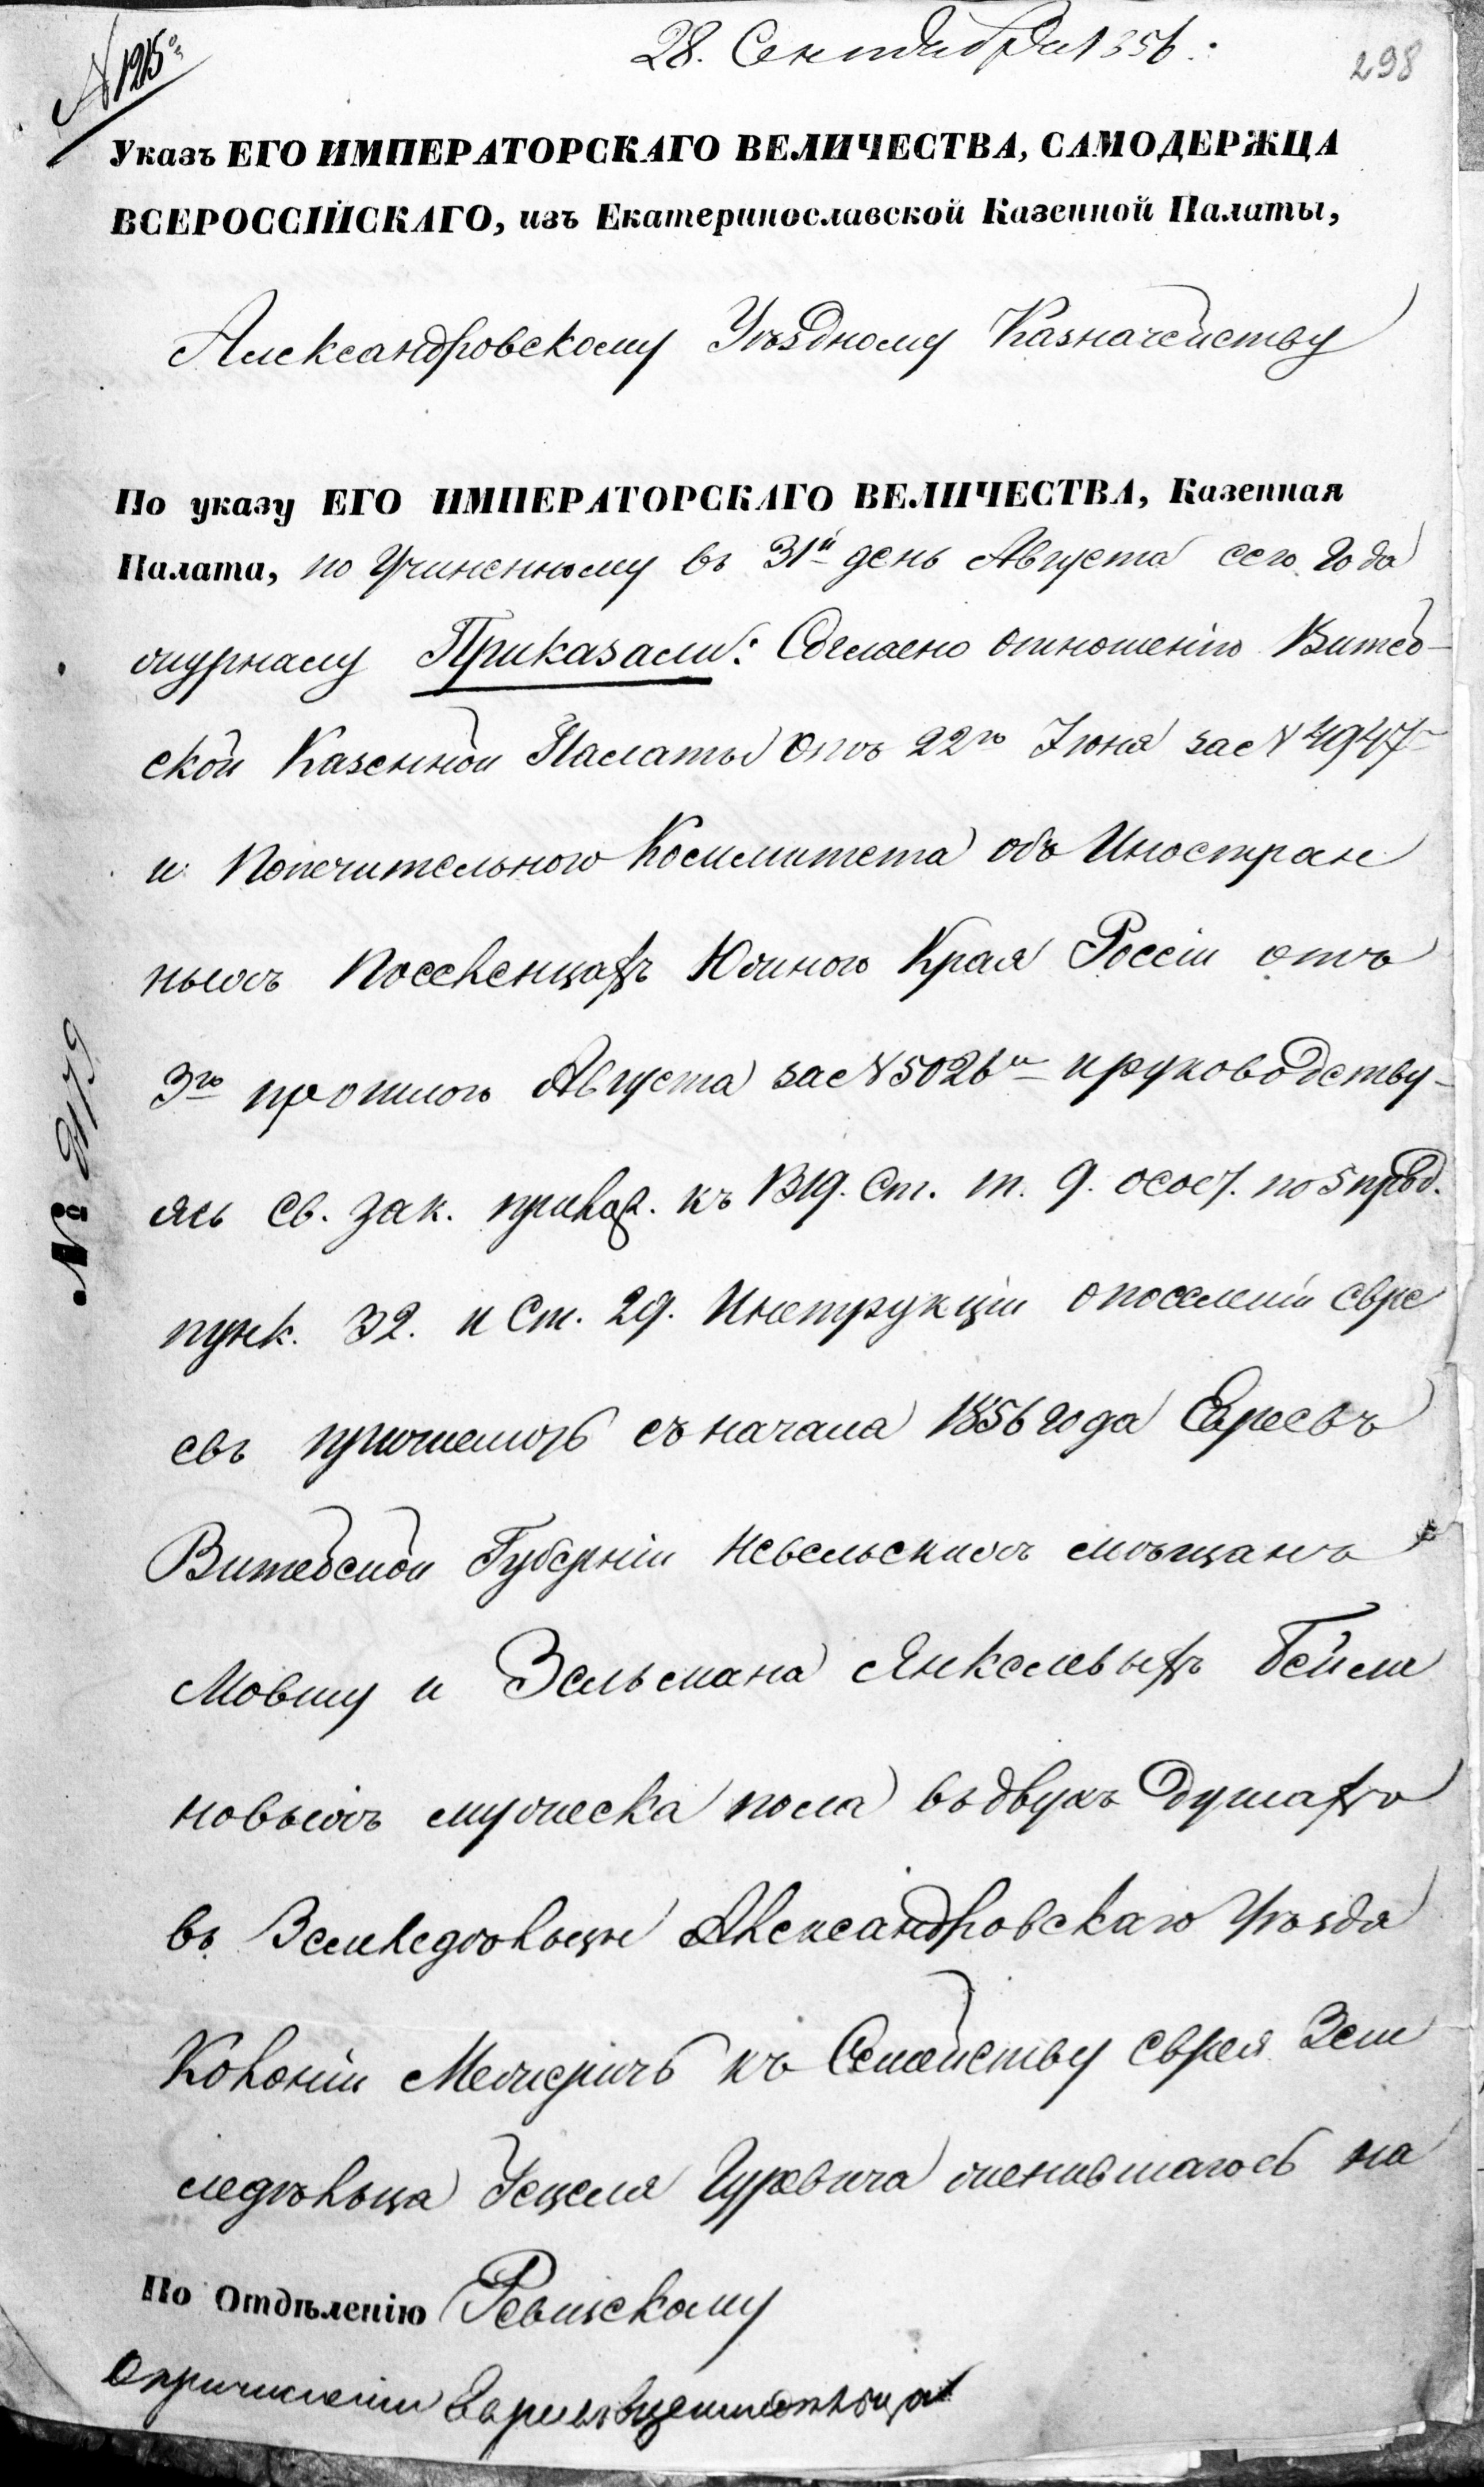 № 1215
28. Сентября 1856:
298
Указъ ЕГО ИМПЕРАТОРСКАГО ВЕЛИЧЕСТВА, САМОДЕРЖЦА
ВСЕРОССІЙСКАГО, изъ Екатеринославской Казенной Палаты,
Александровскому Уѣздному Казначейству
По указу ЕГО ИМПЕРАТОРСКАГО ВЕЛИЧЕСТВА, Казенная
Палата, по учиненному въ 31й день Августа сего года
журналу Приказали: Согласно отношенію Витеб-
ской Казенной Палаты отъ 22го Іюня за № 4947
и Попечительного Коммитета объ Иностран
ныхъ Поселенцахъ Южного Края Россіи отъ
3го прошлого Августа за № 5026 и руководству-
ясь Св. Зак. прилож. къ ст. т. 9. по 5 прод.
пунк. 32. и Ст. 29. Инструкціи о поселеніи евре
евъ причислить съ начала 1856 года Евреевъ
Витебской Губерніи Невельскихъ мѣщанъ
Мовшу и Зельмана Янкелевыхъ Бейли
новыхъ мужеска пола въ двухъ душахъ
въ Земледѣльцы Александровскаго Уѣзда
Колоніи Межиричъ къ Семейству еврея Зем
ледѣльца Іецеля Гуревича женившагось на
По Отдѣленію Ревизскому
О причисленіи Евреевъ въ земледѣльцы
№ 9179